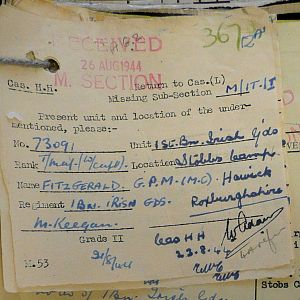 367
RECEIVED
26 AUG 1944
M. SECTION
Cas. H.H. Return to Cas.(L)
Missing Sub-Section M/IT/I
Present unit and location of the under-
mentioned, please:-
No. 73091 Unit 1st. Bn. Irish Gds
Rank T/Maj. (W/Capt) Location Stobbs Camp
Name FITZGERALD. G.P.M. (M.C.) Hawick
Regiment 1 BN. IRISH GDS. Roxburghshire
McKeegan.
Grade II Cas HH
M.53 21/8/44 23.8.44
Stobs C
1 Bn. Irish Gds